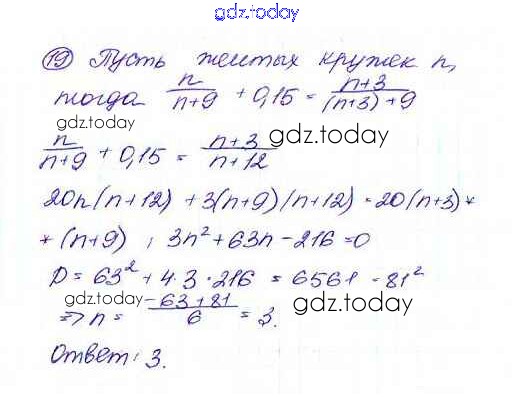 gdz.today
19 Пусть желтых кружек n,
тогда n/(n+9) + 0,15 = (n+3)/((n+3)+9)
gdz.today
n/(n+9) + 0,15 = (n+3)/(n+12) gdz.today
20n(n+12) + 3(n+9)(n+12) = 20(n+3)*
* (n+9) ; 3n²+63n-216=0
gdz.today
D = 63² + 4·3·216 = 6561 = 81²
gdz.today
=> n = (-63+81)/6 = 3. gdz.today
Ответ: 3.